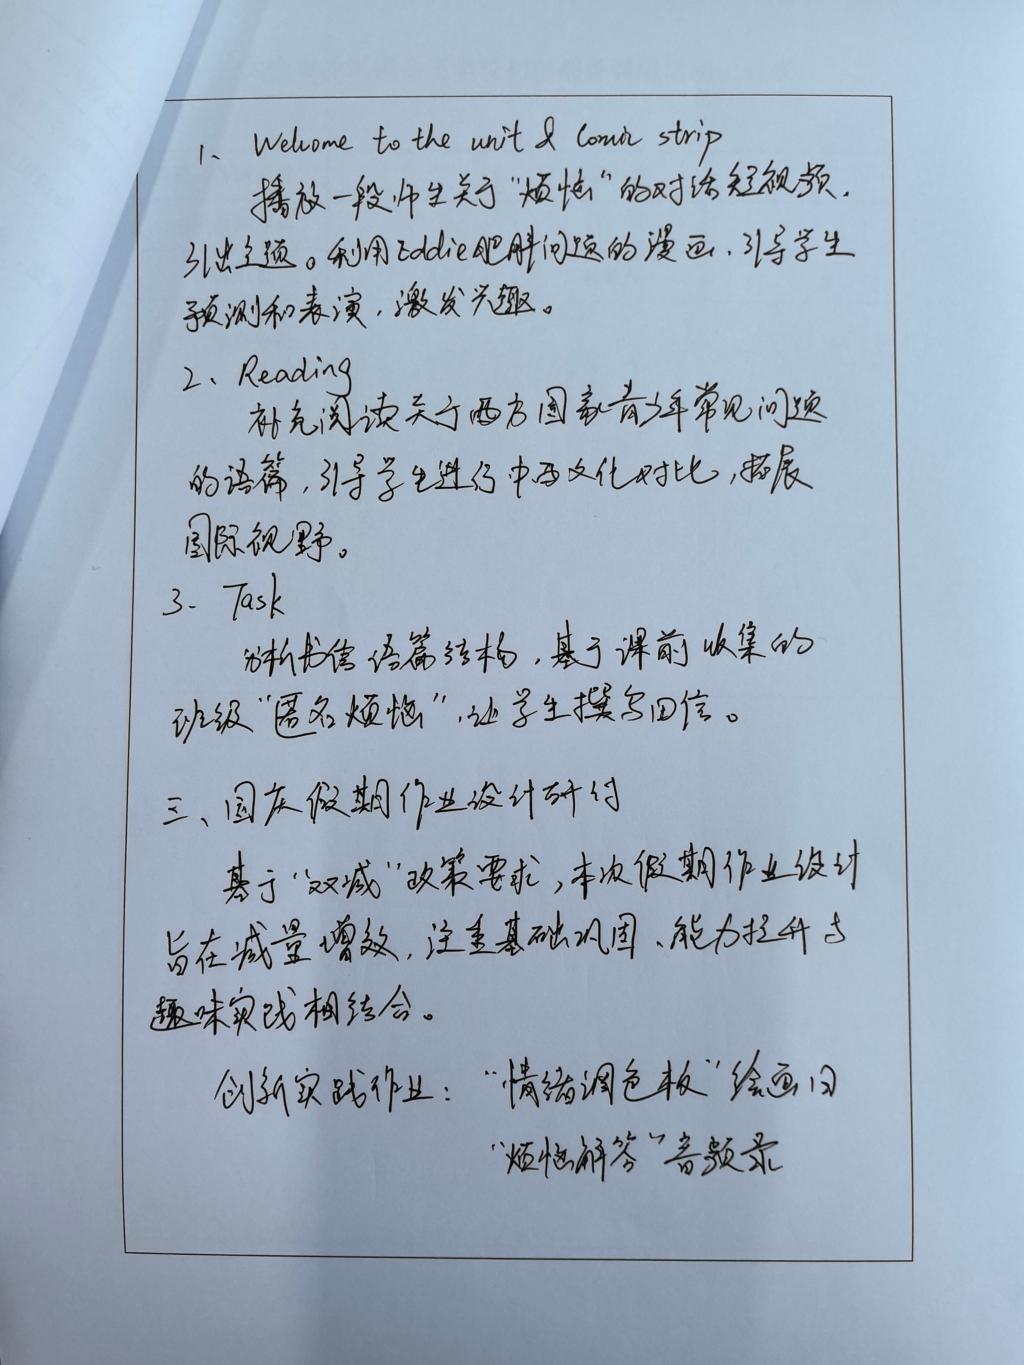 1、 Welcome to the unit & Comic strip
播放一段师生关于“烦恼”的对话短视频，
引出主题。利用Eddie肥胖问题的漫画，引导学生
预测和表演，激发兴趣。
2、 Reading
补充阅读关于西方国家青少年常见问题
的语篇，引导学生进行中西文化对比，拓展
国际视野。
3、 Task
分析书信语篇结构，基于课前收集的
班级“匿名烦恼”，让学生撰写回信。
三、国庆假期作业设计研讨
基于“双减”政策要求，本次假期作业设计
旨在减量增效，注重基础巩固、能力提升与
趣味实践相结合。
创新实践作业：“情绪调色板”绘画日
“烦恼解答”音频录